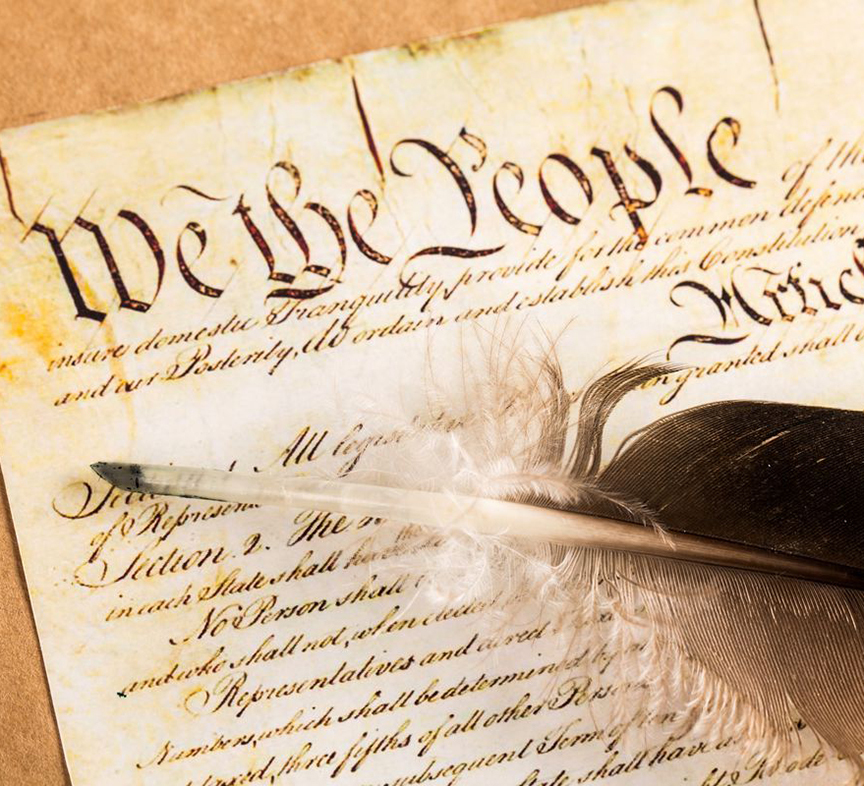 We the People of the
insure domestic Tranquility, provide for the common defence
and our Posterity, do ordain and establish this Constitution
Article
granted shall
Section. All
of Represen
Section 2. The
in each State shall have
No Person shall
and who shall not, when elected
Representatives and direct
Numbers, which shall be determined by
three fifths of all other Persons
subsequent Term of ten
State shall have